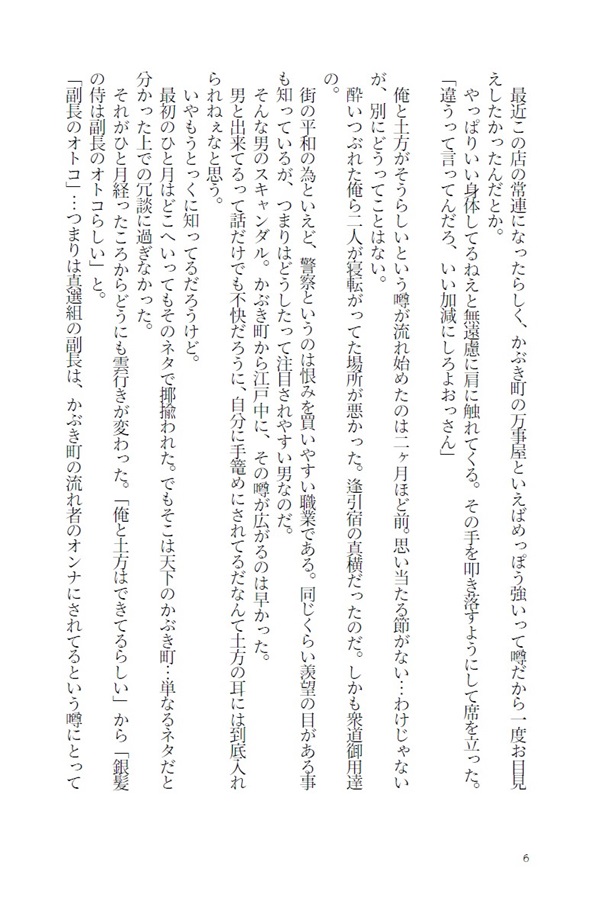 最近この店の常連になったらしく、かぶき町の万事屋といえばめっぽう強いって噂だから一度お目見
えしたかったんだとか。
やっぱりいい身体してるねえと無遠慮に肩に触れてくる。その手を叩き落すようにして席を立った。
「違うって言ってんだろ、いい加減にしろよおっさん」
俺と土方がそうらしいという噂が流れ始めたのは二ヶ月ほど前。思い当たる節がない…わけじゃない
が、別にどうってことはない。
酔いつぶれた俺ら二人が寝転がってた場所が悪かった。逢引宿の真横だったのだ。しかも衆道御用達
の。
街の平和の為といえど、警察というのは恨みを買いやすい職業である。同じくらい羨望の目がある事
も知っているが、つまりはどうしたって注目されやすい男なのだ。
そんな男のスキャンダル。かぶき町から江戸中に、その噂が広がるのは早かった。
男と出来てるって話だけでも不快だろうに、自分に手篭めにされてるだなんて土方の耳には到底入れ
られねぇなと思う。
いやもうとっくに知ってるだろうけど。
最初のひと月はどこへいってもそのネタで揶揄われた。でもそこは天下のかぶき町…単なるネタだと
分かった上での冗談に過ぎなかった。
それがひと月経ったころからどうにも雲行きが変わった。「俺と土方はできてるらしい」から「銀髪
の侍は副長のオトコらしい」と。
「副長のオトコ」…つまりは真選組の副長は、かぶき町の流れ者のオンナにされてるという噂にとって
6